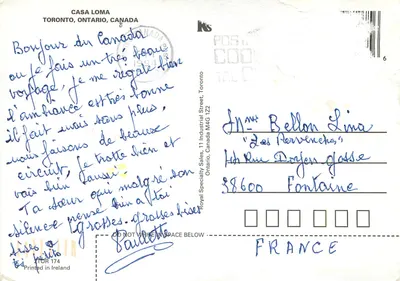 CASA LOMA
TORONTO, ONTARIO, CANADA
Bonjour du Canada
ou je fais un très beau
voyage, je me régale bien
l'ambiance est très bonne
il fait mais sans plus,
nous faisons de beaux
circuit, je trotte bien et
vais bien aussi
Ta sœur qui malgré son
silence pense bien à toi
grosses grosses bises
Paulette
DO NOT WRITE IN SPACE BELOW
TOR 174
Printed in Ireland
Royal Specialty Sales, 11 Industrial Street, Toronto
Ontario, Canada M4G 1Z2
POST
CODE
6
Mme Bellon Lina
"Les Pervenches"
Rue
38600 Fontaine
FRANCE